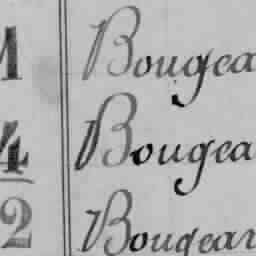 1 Bougea
4 Bougea
2 Bougear